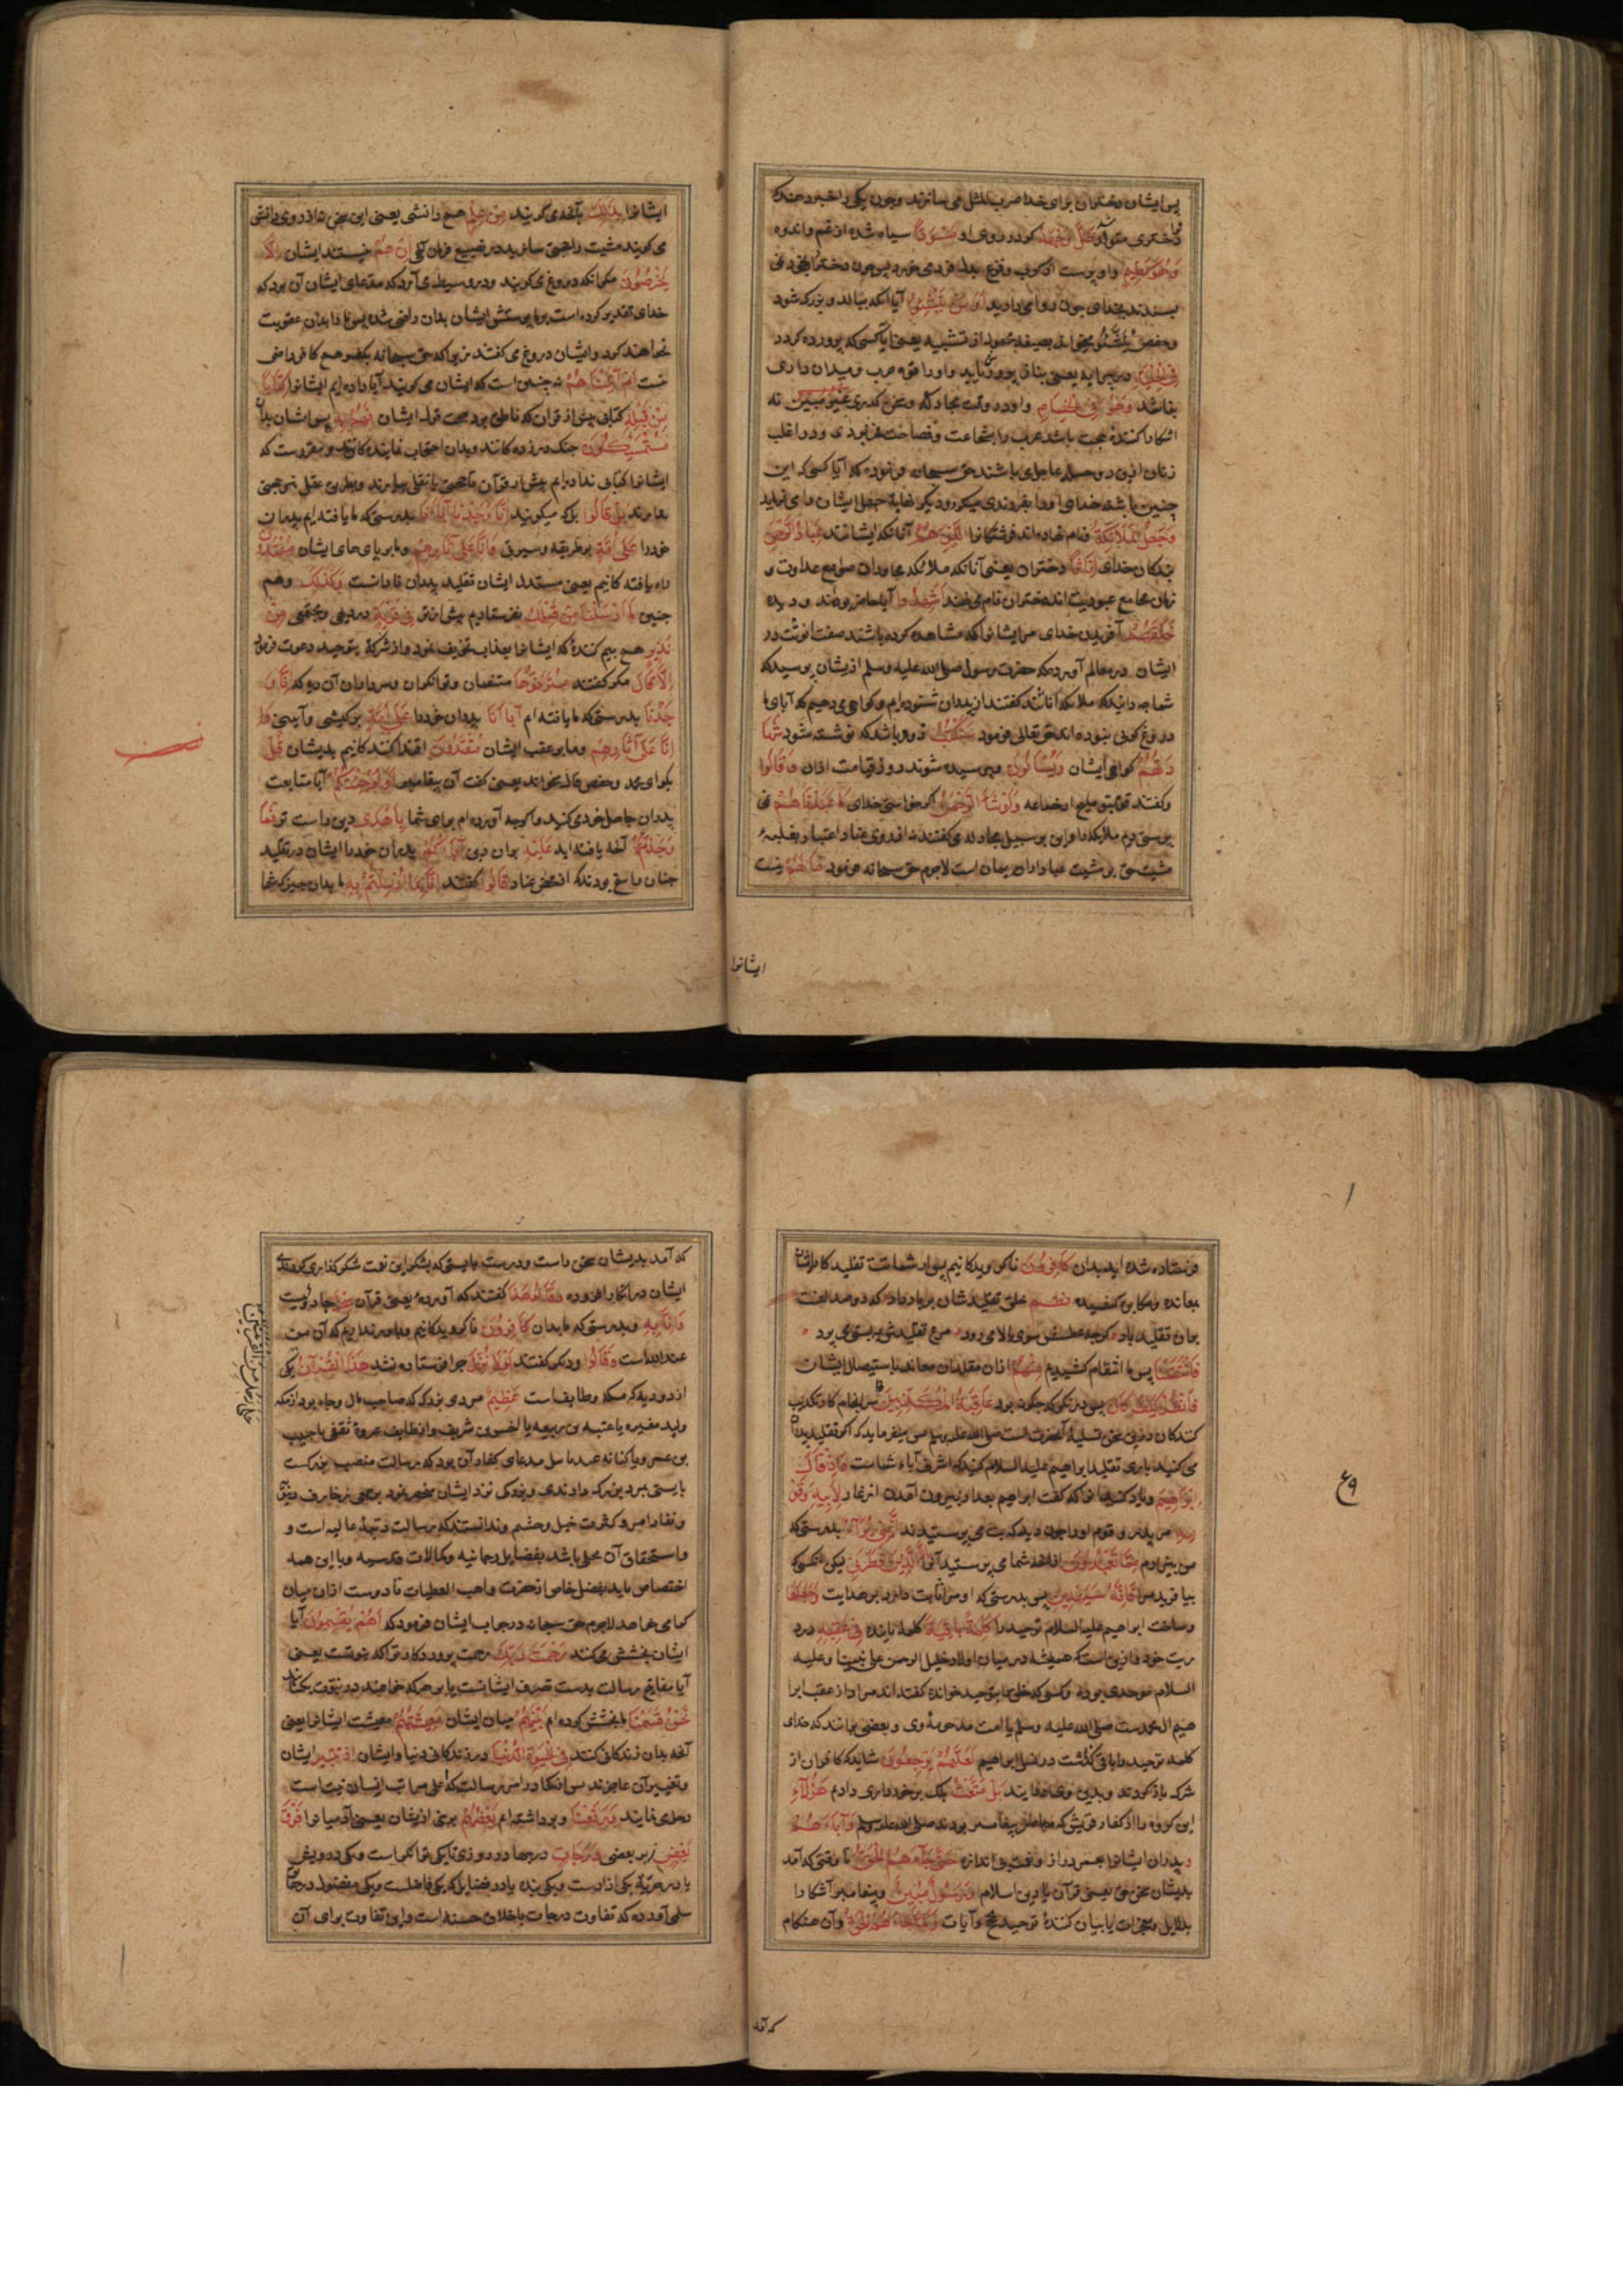 پس ایشان دختران برای خدا ضرب المثل می سازند و چون یکی را خبر دهند که
دختری متولد شد ظَلَّ وَجْهُهُ کردد روی او مُسْوَدًّا سیاه شده از غم و اندوه
وَهُوَ كَظِيمٌ و او پرست از کرب
بسندند بخدای چون روا می دارید أَوَمَنْ يُنَشَّؤُا آیا آنکه ببالد و بزرک شود
و حفص يُنَشَّؤُا میخواند بصیغه مجهول از تنشیه یعنی آیا کسی که پرورده کردد
فِي الْحِلْيَةِ در پیرایه یعنی بناز پرورش یابد و او را قوت حرب و میدان داری
نباشد وَهُوَ فِي الْخِصَامِ و او در وقت مجادله و سخن کذاری غَيْرُ مُبِينٍ نه
اشکارا کننده حجت باشد عرب را بشجاعت و فصاحت فخر بودی و در اغلب
زنان این دو حلیه عاطل می باشند حق سبحانه فرمود که آیا کسی که این
چنین باشد خدای او را بفرزندی میکیرد
وَجَعَلُوا الْمَلَائِكَةَ و نام نهاده اند فرشتکانرا الَّذِينَ هُمْ آنانکه ایشانند عِبَادُ الرَّحْمَنِ
بندکان خدای إِنَاثًا دختران یعنی آنانکه ملائکه مجاوران صوامع عبادت و
مجامع عبودیت اند دختران نام می نهند أَشَهِدُوا آیا حاضر بودند و دیده
خَلْقَهُمْ آفریدن خدای مر ایشانرا که مشاهده کرده باشند صفت انوثت در
ایشان در معالم آورده که حضرت رسول صلی الله علیه وسلم از ایشان پرسید که
شما چه دانید که ملائکه اناثند کفتند از پدران شنوده ایم و کواهی می دهیم که آبای ما
دروغ کوی نبوده اند حق تعالی فرمود سَتُكْتَبُ زود باشد که نوشته شود شَهَا
دَتُهُمْ کواهی ایشان وَيُسْأَلُونَ و پرسیده شوند روز قیامت ازان وَقَالُوا
و کفتند لَوْ شَاءَ الرَّحْمَنُ اکر خواستی خدای مَا عَبَدْنَاهُمْ نمی
پرستیدیم ملائکه را و این بر سبیل مجادله می کفتند نه از روی
مشیت حق بر مشیت عباد لاجرم حق سبحانه فرمود مَا لَهُمْ نیست
ایشانرا
ایشانرا بِذَلِكَ بآنچه می کویند مِنْ عِلْمٍ هیچ دانشی یعنی این سخن نه از روی دانش
می کویند مشیت را حجتی سازند در تضییع فرمان الهی إِنْ هُمْ نیستند ایشان إِلَّا
يَخْرُصُونَ مکر آنکه دروغ می کویند و در وسیط می آرد که مدعای ایشان آن بود که
خدای تقدیر کرده است بر ما پرستش ایشان بدان راضی شده پس ما را بدان عقوبت
نخواهند کرد و ایشان دروغ می کفتند زیرا که حق سبحانه بکفر هیچ کافر راضی
نیست أَمْ آتَيْنَاهُمْ نه چنین است که ایشان می کویند آیا داده ایم ایشانرا كِتَابًا
مِنْ قَبْلِهِ کتابی پیش از قران که ناطق بود بصحت قول ایشان فَهُمْ بِهِ پس ایشان بدان
مُسْتَمْسِكُونَ چنک در زده کانند و بدان احتجاج نماینده کانند و مقررست که
ایشانرا کتابی نداده ایم پیش از قرآن
بَلْ قَالُوا بلکه میکویند إِنَّا وَجَدْنَا آبَاءَنَا بدرستی که ما یافته ایم پدران
خود را عَلَى أُمَّةٍ بر طریقه و سیرتی وَإِنَّا عَلَى آثَارِهِمْ و ما بر پای های ایشان مُهْتَدُونَ
راه یافته کانیم یعنی مستند ایشان تقلید پدران نادانست وَكَذَلِكَ و هم
چنین مَا أَرْسَلْنَا مِنْ قَبْلِكَ نفرستادیم پیش از تو فِي قَرْيَةٍ در دیهی و مجمعی مِنْ
نَذِيرٍ هیچ بیم کننده که ایشانرا بعذاب تخویف نمود و از شرک بتوحید دعوت فرمود
إِلَّا قَالَ مکر کفتند مُتْرَفُوهَا متنعمان و توانکران و سرداران آن دیه که إِنَّا وَ
جَدْنَا بدرستی که ما یافته ایم آبَاءَنَا پدران خود را عَلَى أُمَّةٍ بر کیشی و آیینی وَ
إِنَّا عَلَى آثَارِهِمْ و ما بر عقب ایشان مُقْتَدُونَ اقتدا کنند کانیم بدیشان قُلْ
بکو ای محمد و حفص قال بخواند یعنی کفت آن پیغامبر أَوَلَوْ جِئْتُكُمْ آیا متابعت
پدران جاهل خود می کنید و اکرچه آورده ام برای شما بِأَهْدَى دینی راست تر مِمَّا
وَجَدْتُمْ از آنچه یافته اید عَلَيْهِ بران دین آبَاءَكُمْ پدران خود را ایشان در تقلید
چنان راسخ بودند که از محض عناد قَالُوا کفتند إِنَّا بِمَا أُرْسِلْتُمْ بِهِ ما بدان چیز که شما
فرستاده شده اید بدان كَافِرُونَ ناکرویدکانیم
معانده و مکابره کشیده نظم خلق را تقلیدشان بر باد داد که دو صد لعنت
بران تقلید باد کرچه عقلش سوی بالا می رود مرغ تقلیدش بپستی می پرد
فَانْتَقَمْنَا پس ما انتقام کشیدیم مِنْهُمْ ازان مقلدان معاند باستیصال ایشان
فَانْظُرْ كَيْفَ كَانَ پس در نکر که چکونه بود عَاقِبَةُ الْمُكَذِّبِينَ سرانجام کار تکذیب
کنندکان و درین سخن تسلیه آنحضرت است صلی الله علیه وسلم پس میفرماید که اکر تقلید پدران
می کنید باری تقلید ابراهیم علیه السلام کنید که اشرف آباء شماست وَإِذْ قَالَ
إِبْرَاهِيمُ و یاد کنید آنرا که کفت ابراهیم بعد از بیرون آمدن از غار لِأَبِيهِ وَقَوْ
مِهِ مر پدر و قوم او را چون دید که بت می پرستیدند إِنَّنِي بَرَاءٌ بدرستی که
من بیزارم مِمَّا تَعْبُدُونَ از آنچه شما می پرستید إِلَّا الَّذِي فَطَرَنِي لیکن آنکسی که
بیافرید مرا فَإِنَّهُ سَيَهْدِينِ پس بدرستی که او مرا ثابت دارد بر هدایت وَجَعَلَهَا
و ساخت ابراهیم علیه السلام توحید را كَلِمَةً بَاقِيَةً کلمه پاینده فِي عَقِبِهِ در ذ
ریت خود و ازین است که همیشه در میان اولاد خلیل الرحمن علی نبینا و علیه
السلام موحدی بوده و کسی که خلق را بتوحید خوانده کفته اند مراد از عقب ابرا
هیم ال محمدست صلی الله علیه وسلم یا امت مرحومه وی و بعضی برانند که خدای
کلمه توحید را باقی کذاشت در نسل ابراهیم لَعَلَّهُمْ يَرْجِعُونَ شاید که کافران از
شرک باز کردند و بدین وی درآیند بَلْ مَتَّعْتُ بلکه برخورداری دادم هَؤُلَاءِ
این کروه را از کفار قریش که معاصر پیغامبر بودند صلی الله علیه وسلم وَآبَاءَهُمْ
و پدران ایشانرا بعمر دراز و نعمت بی اندازه حَتَّى جَاءَهُمُ الْحَقُّ تا وقتی که آمد
بدیشان سخن حق یعنی قرآن یا دین اسلام وَرَسُولٌ مُبِينٌ و پیغامبر آشکارا
بدلایل و معجزات یا بیان کننده توحید بحجج و آیات وَلَمَّا جَاءَهُمُ الْحَقُّ و آن هنکام
که آمد
ع۹
که آمد بدیشان سخن راست و درست بایستی که بشکر این نعمت شکر کذاری کردندی
ایشان در انکار افزوده قَالُوا هَذَا کفتند که آورده یعنی قرآن سِحْرٌ جادوئیست
وَإِنَّا بِهِ و بدرستی که ما بدان كَافِرُونَ ناکرویدکانیم و باور نداریم که آن من
عند الله است وَقَالُوا و دیکر کفتند لَوْلَا نُزِّلَ چرا فرستاده نشد هَذَا الْقُرْآنُ
از دو دیه که مکه و طایف است عَظِيمٍ مردی بزرک که صاحب مال و جاه بود از مکه
ولید مغیره یا عتبه بن ربیعه یا اخنس بن شریف و از طایف عروة ثقفی یا حبیب
بن عمرو یا کنانه عبد یالیل مدعای کفار آن بود که رسالت منصب بزرکست
بایستی بمرد بزرک دادندی و بزرکی نزد ایشان منحصر بود
و نفاد امر و کثرت خیل و حشم و ندانستند که رسالت مرتبه عالیه است و
استحقاق آن بفضایل روحانیه و کمالات قدسیه و با این همه
اختصاص یابد بفضل خاص از حضرت واهب العطیات تا دوست ازان میان
کرا می خواهد لاجرم حق سبحانه در جواب ایشان فرمود که أَهُمْ يَقْسِمُونَ آیا
ایشان بخشش می کنند رَحْمَتَ رَبِّكَ رحمت پروردکار ترا که نبوتست یعنی
آیا مفاتیح رسالت بدست تصرف ایشانست تا بر هر که خواهند در نبوت بکشایند
نَحْنُ قَسَمْنَا ما بخشش کرده ایم بَيْنَهُمْ میان ایشان مَعِيشَتَهُمْ معیشت ایشانرا یعنی
آنچه بدان زندکانی کنند فِي الْحَيَاةِ الدُّنْيَا در زندکانی دنیا و ایشان از تدبیر ایشان
و تغییر آن عاجزند پس انکار در امر رسالت که اعلی مراتب انسانیت است
وَرَفَعْنَا و برداشته ایم بَعْضَهُمْ برخی ازیشان یعنی آدمیانرا فَوْقَ
بَعْضٍ زبر بعضی دَرَجَاتٍ درجها در روزی تا یکی توانکر است و یکی درویش
یا در حریت یکی آزادست و یکی بنده یا در فضایل که یکی فاضلست و یکی مفضول در حقایق
سلمی آورده که تفاوت درجات باخلاق حسنه است و این تفاوت برای آن